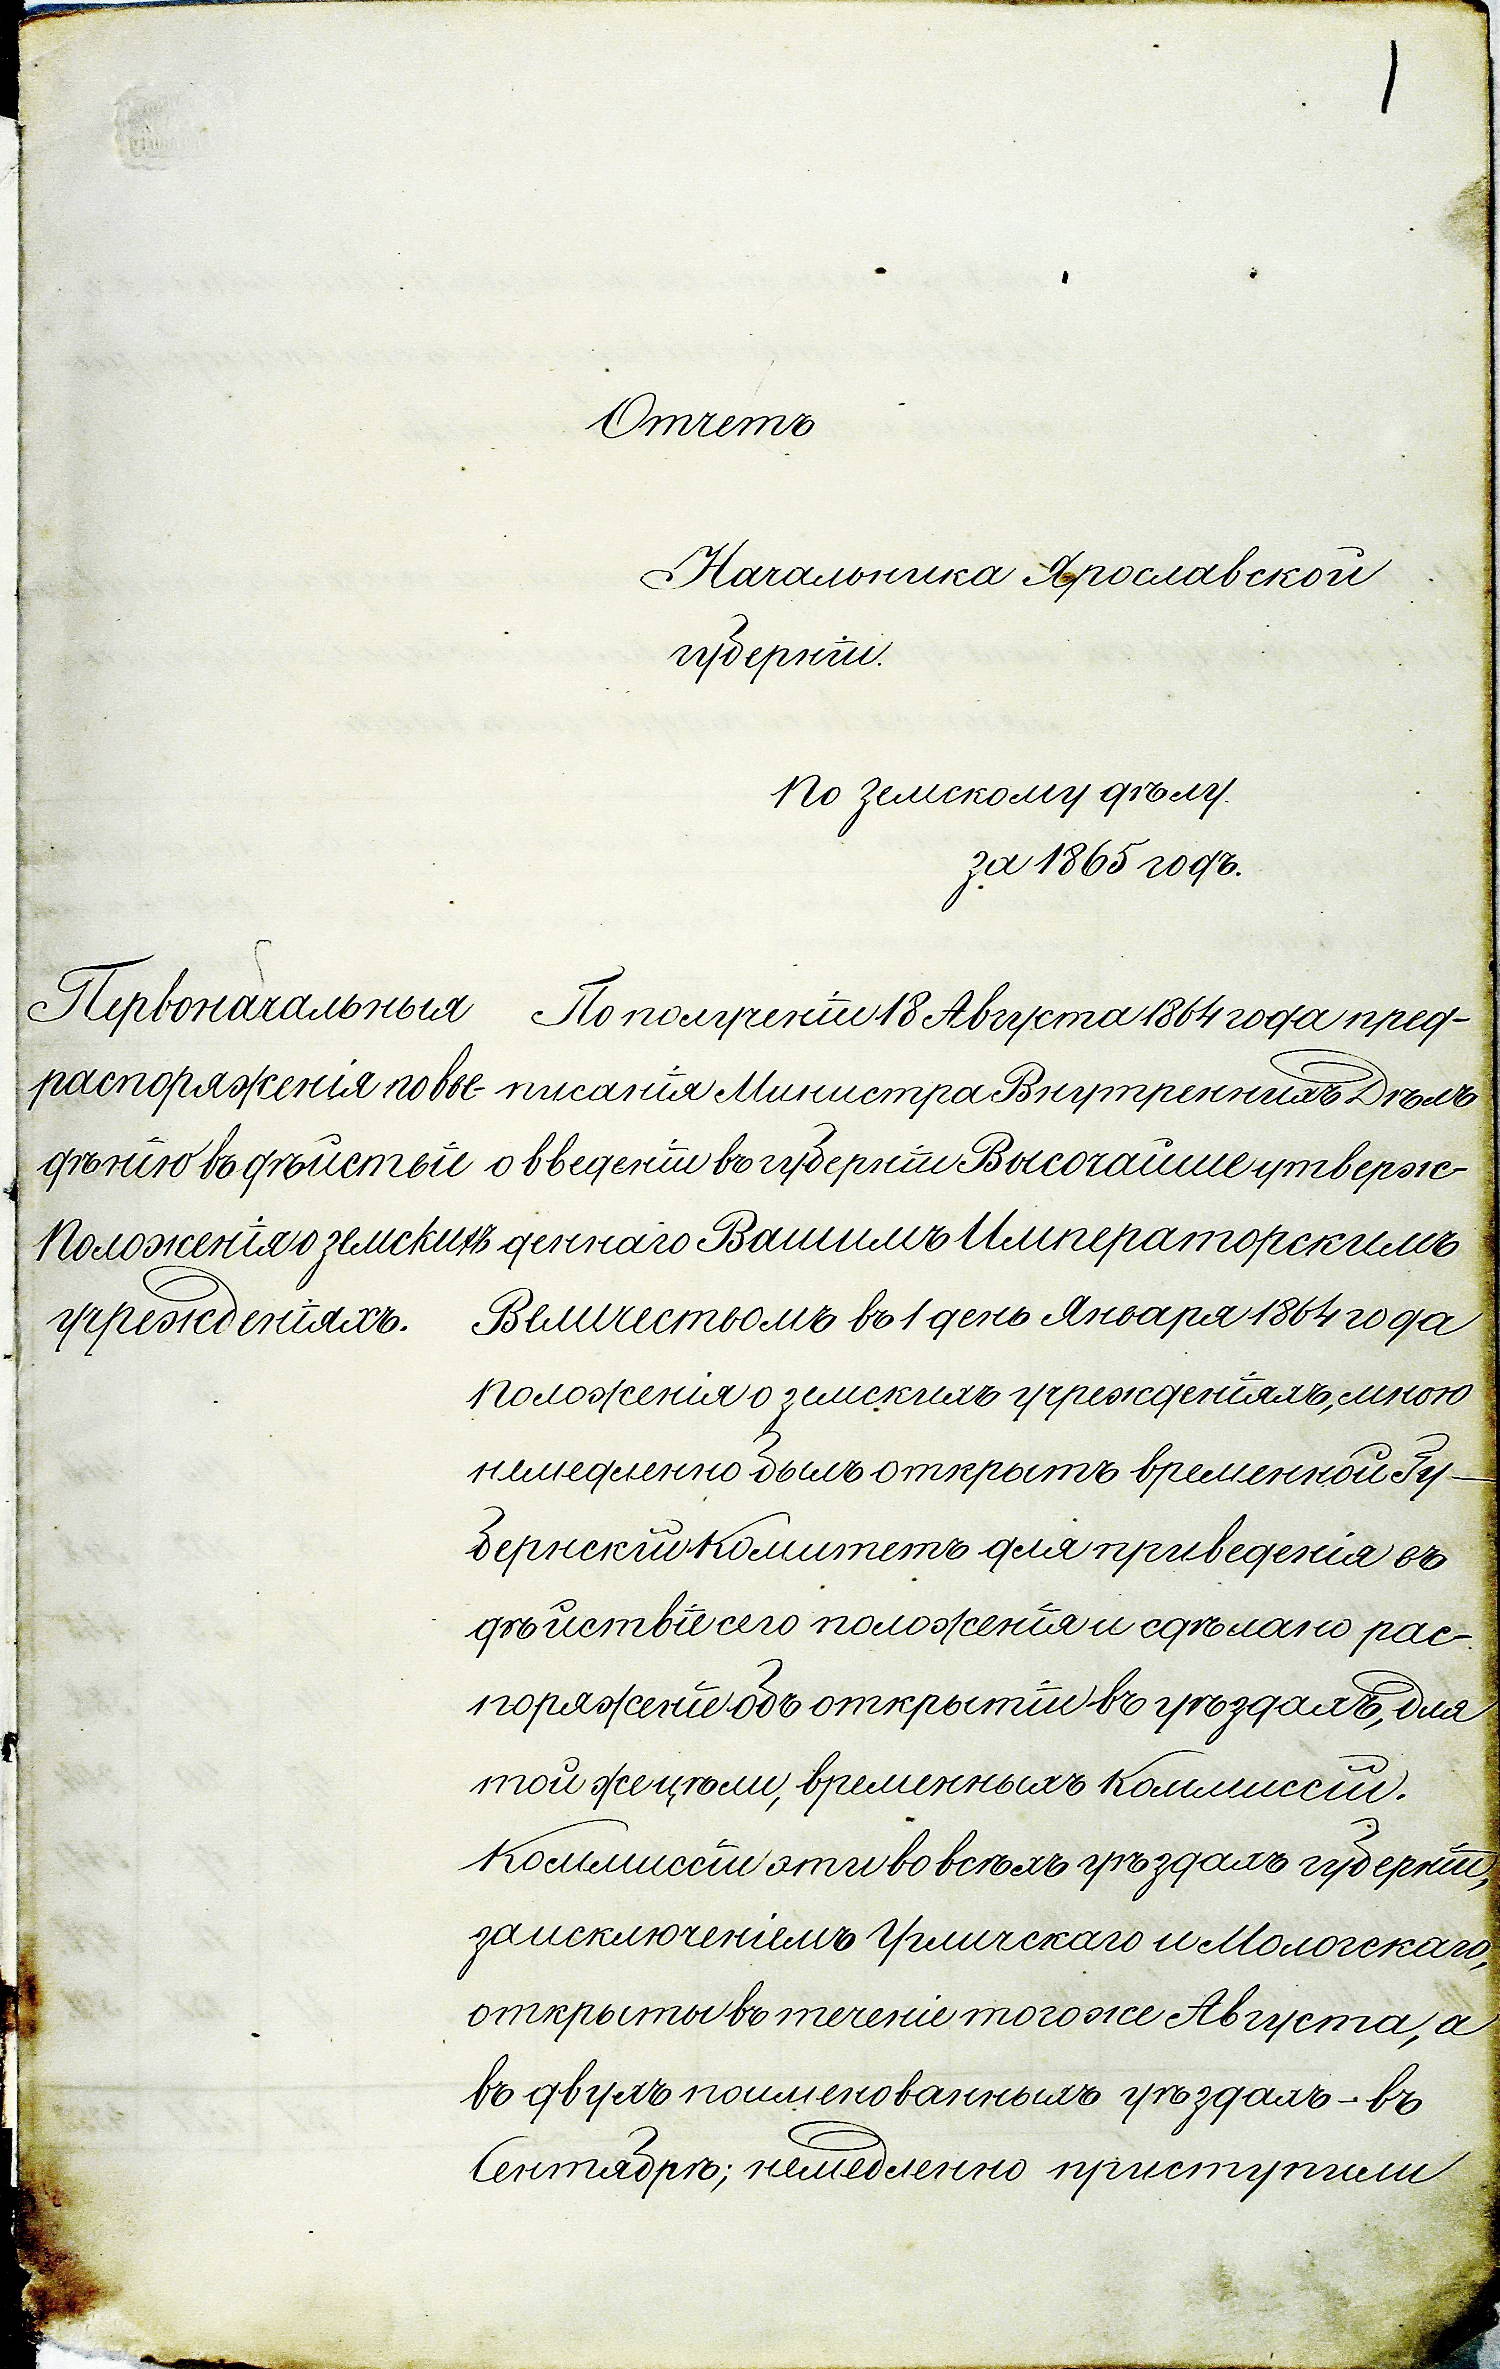 1
Отчетъ
Начальника Ярославской
губерніи.
По земскому дѣлу.
за 1865 годъ.
Первоначальныя
распоряженія по вве-
дѣнію въ дѣйствіе
Положенія о земскихъ
учрежденіяхъ.
По полученіи 18 Августа 1864 года пред-
писанія Министра Внутреннихъ Дѣлъ
о введеніи въ губерніи Высочайше утверж-
деннаго Вашимъ Императорскимъ
Величествомъ въ 1 день Января 1864 года
Положенія о земскихъ учрежденіяхъ, мною
немедленно былъ открытъ временной Гу-
бернскій Комитетъ для приведенія въ
дѣйствіе сего положенія и сдѣлано рас-
поряженіе объ открытіи въ уѣздахъ, для
той же цѣли, временныхъ Коммиссій.
Коммиссіи эти во всѣхъ уѣздахъ губерніи,
за исключеніемъ Угличскаго и Мологскаго,
открыты въ теченіе того же Августа, а
въ двухъ поименованныхъ уѣздахъ - въ
Сентябрѣ; немедленно приступили